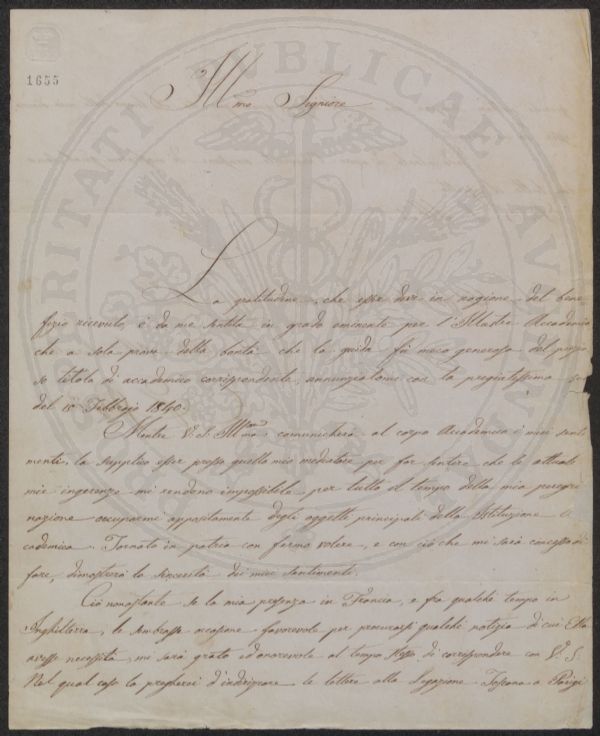 1655
Ill.mo Signiore
La gratitudine, che esser deve in ragione del bene
fizio ricevuto, è da me sentita in grado eminente per l'Illustre Accademia
che a sola prova della bontà che la guida fù meco generosa del prezio
so titolo di accademico corrispondente annunziatomi con la pregiatissima sua
del 10 Febbrajo 1840.
Mentre V. S. Ill.ma comunicherà al corpo Accademico i miei senti
menti, la supplico esser presso quello mio mediatore per far sentire che le attuali
mie ingerenze mi rendono impossibile per tutto il tempo della mia peregri
nazione occuparmi appositamente degli oggetti principali della Istituzione Ac
cademica. Tornato in patria con fermo volere, e con ciò che mi sarà concesso di
fare, dimostrerò la sincerità dei miei sentimenti.
Ciò nonostante se la mia presenza in Francia, e fra qualche tempo in
Inghilterra, le sembrasse occasione favorevole per procurarsi qualche notizia di cui Ella
avesse necessità, mi sarà grato ed onorevole al tempo stesso di corrispondere con V. S.
Nel qual caso la pregherei d'indirizzare le lettere alla Legazione Toscana a Parigi